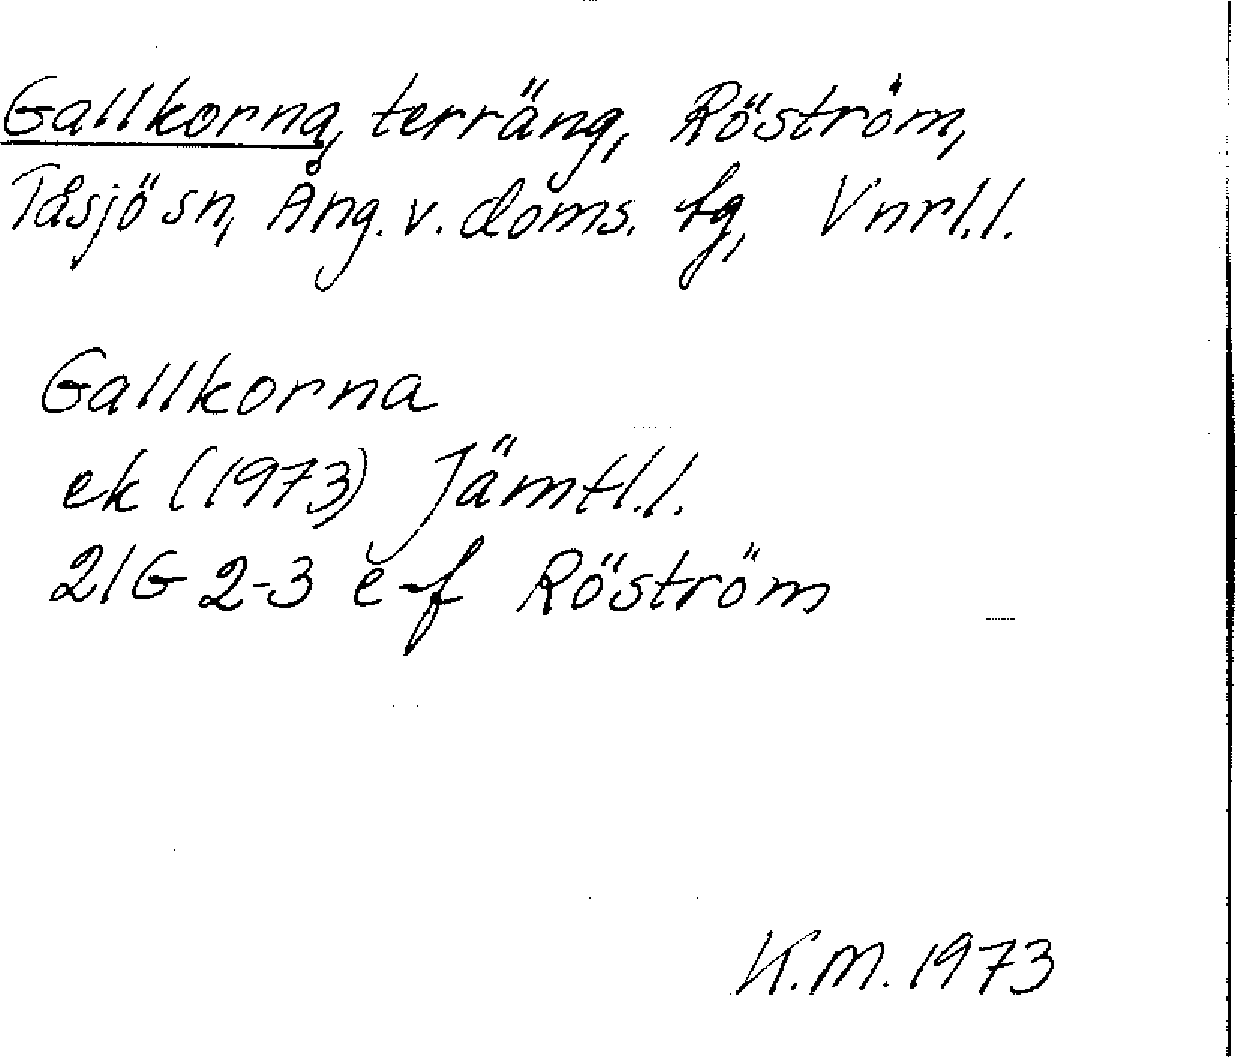 Gallkorna, terräng, Röström,
Tåsjö sn, Ång. v. doms. fg, Vnrl.l.
Gallkorna
ek (1973) Jämtl.l.
21G 2-3 e-f Röström
K.M. 1973